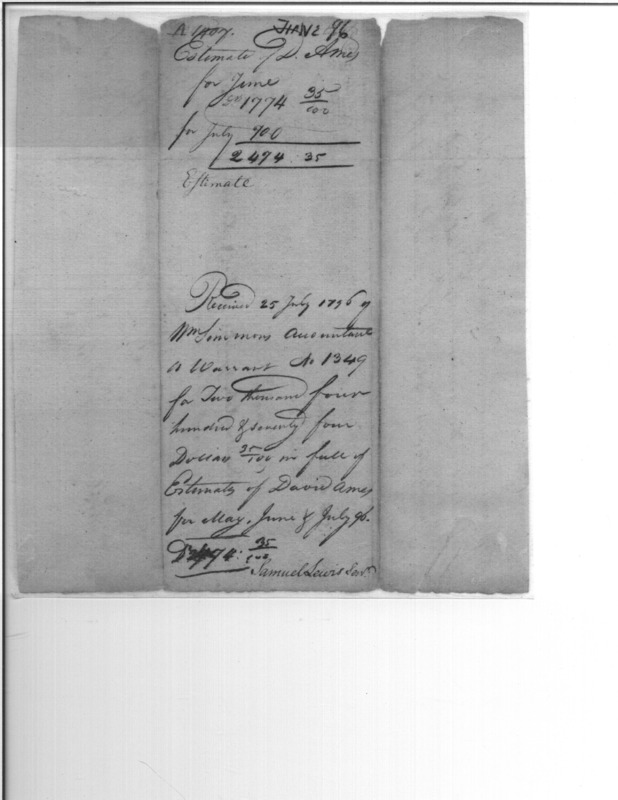 June 96
Estimate of D. Ames
for June
1774 35/100
for July 700
2474 35
Estimate
Received 25 July 1796 of
Wm Simmons Accountant
a Warrant No 1349
for Two thousand four
hundred & seventy four
Dollars 35/100 in full of
Estimate of David Ames
for May, June & July 96.
D 2474: 35/100
Samuel Lewis Senr